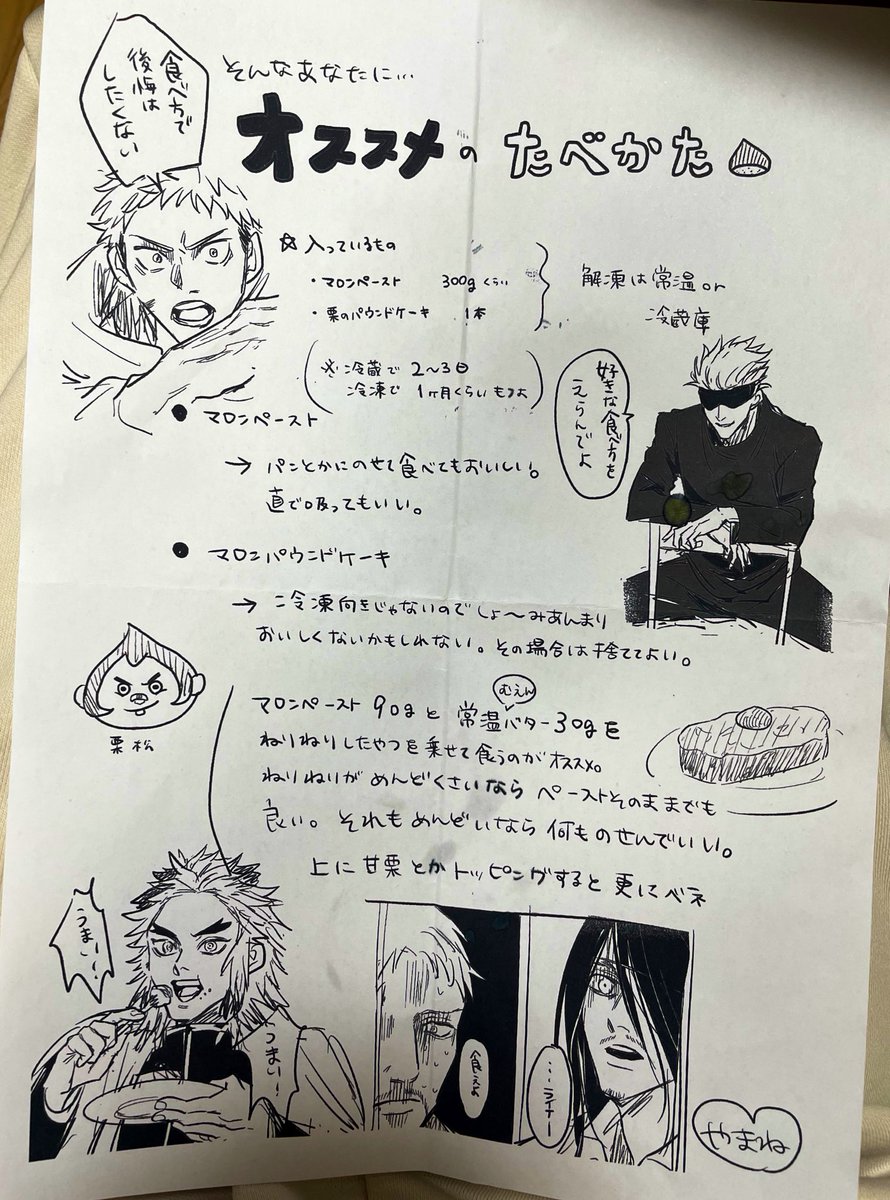 食べ方で
後悔は
したくない
そんなあなたに…
オススメのたべかた
☆入っているもの
・マロンペースト 300gくらい
・栗のパウンドケーキ 1本
解凍は常温or
冷蔵庫
※冷蔵で2〜3日
冷凍で1ヶ月くらいもつよ
好きな食べ方を
えらんでよ
●マロンペースト
→パンとかにのせて食べてもおいしい。
直で吸ってもいい。
●マロンパウンドケーキ
→冷凍向きじゃないのでしょ〜みあんまり
おいしくないかもしれない。その場合は捨ててよい。
栗松
むえん
マロンペースト90gと常温バター30gを
ねりねりしたやつを乗せて食うのがオススメ。
ねりねりがめんどくさいならペーストそのままでも
良い。それもめんどいなら何ものせんでいい。
上に甘栗とかトッピングすると更にベネ
うまい!
うまい!
食えよ
…ライナー
やまね